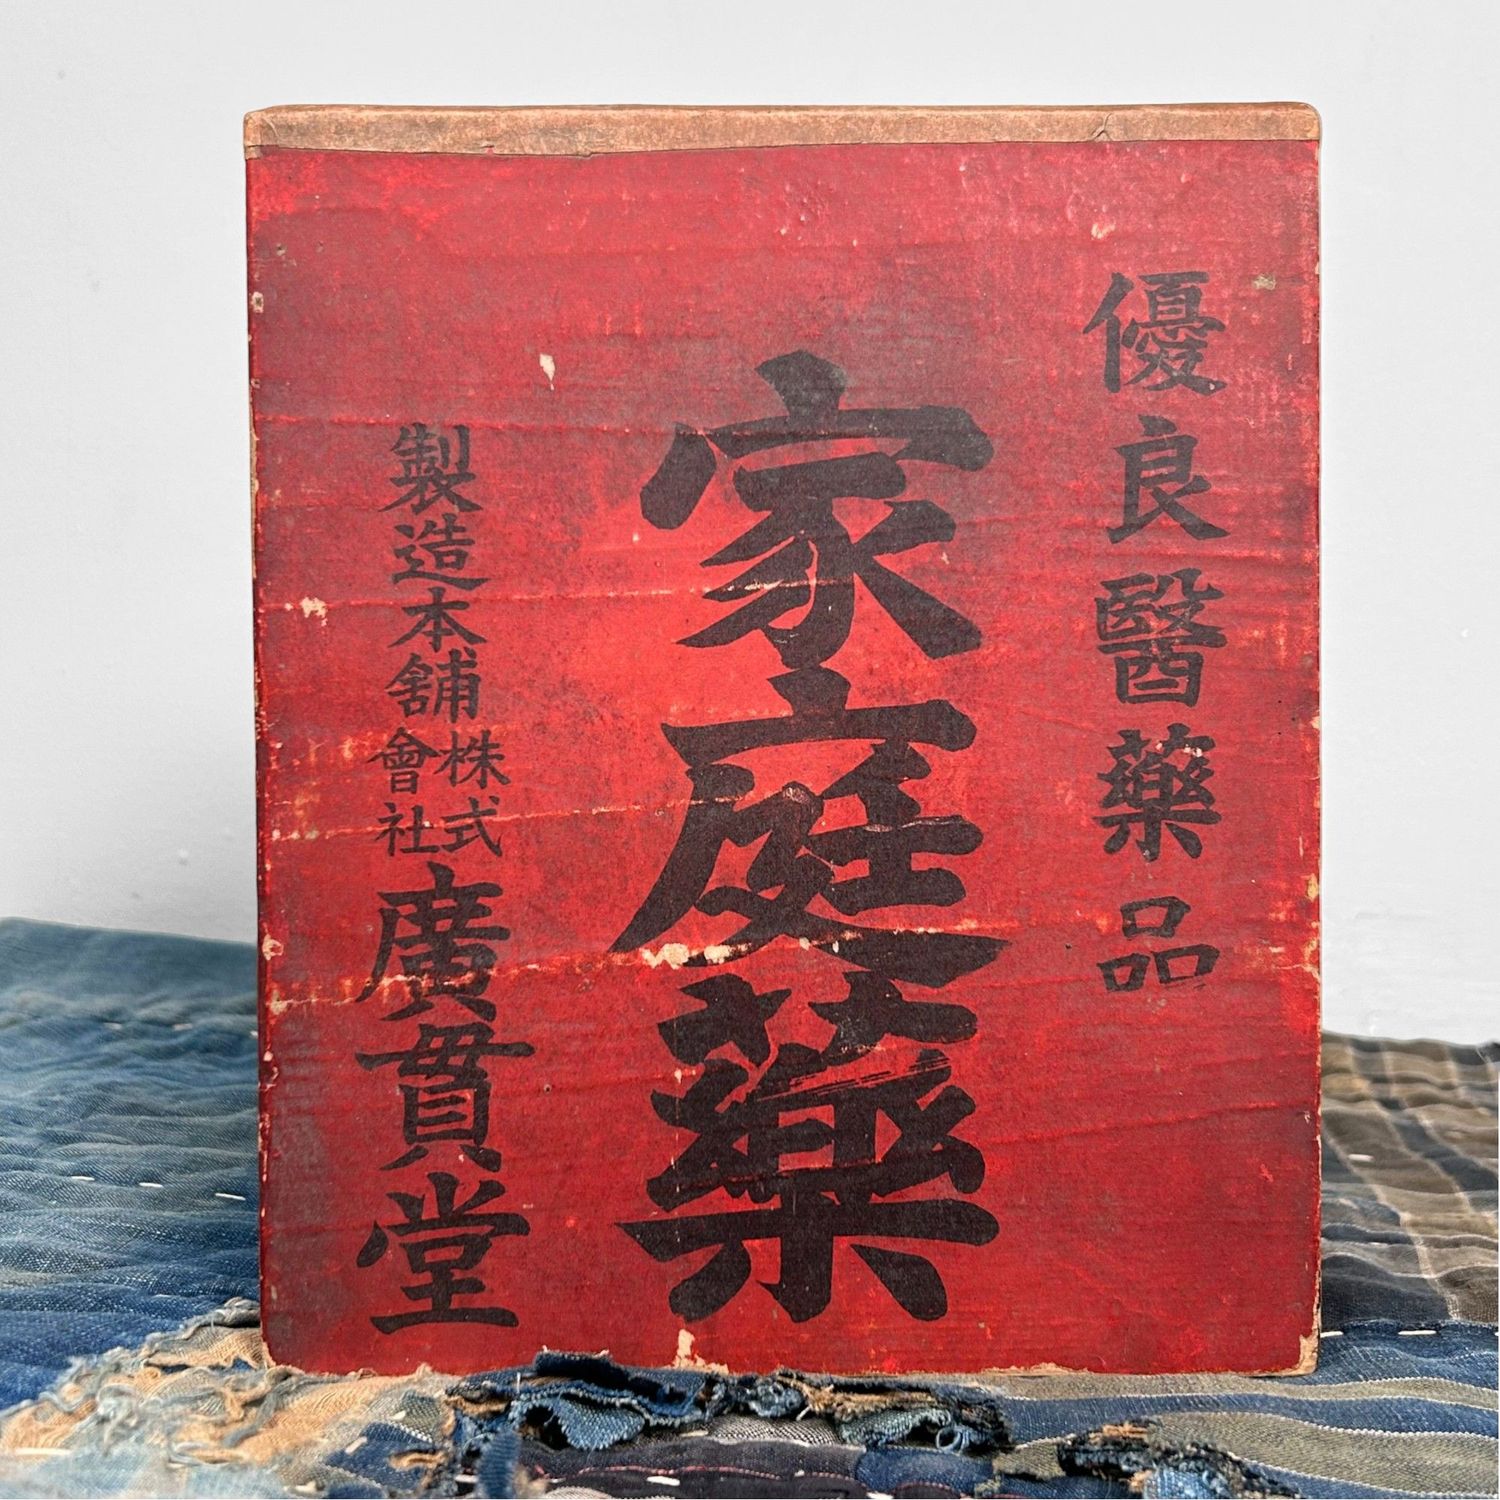 優良醫藥品
家庭藥
製造本舖株式會社廣貫堂